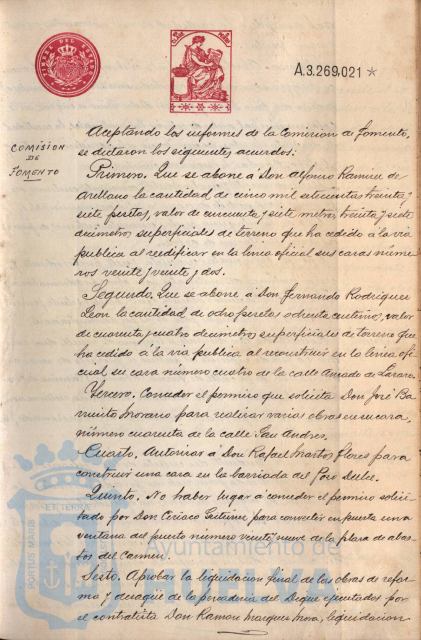 TIMBRE DEL ESTADO
A.3.269,021
COMISION
DE
FOMENTO
Aceptando los informes de la Comision de Fomento,
se dictaron los siguientes acuerdos:
Primero. Que se abone á Don Alfonso Ramirez de
Arellano la cantidad de cinco mil setecientas treinta y
siete pesetas, valor de cincuenta y siete metros treinta y siete
decimetros superficiales de terreno que ha cedido á la via
publica al reedificar en la linea oficial sus casas núme
ros veinte y veinte y dos.
Segundo. Que se abone á Don Fernando Rodriguez
Leon la cantidad de ocho pesetas ochenta centimos, valor
de cuarenta y cuatro decimetros superficiales de terreno que
ha cedido á la via publica al reconstruir en la linea ofi
cial su casa número cuatro de la calle Amado de Lázaro.
Tercero. Conceder el permiso que solicita Don José Ba
rruito Morano para realizar varias obras en su casa,
número cuarenta de la calle San Andres.
Cuarto. Autorizar á Don Rafael Martos Flores para
construir una casa en la barriada del Pozo Dulce.
Quinto. No haber lugar á conceder el permiso solici
tado por Don Ciriaco Gutierrez para convertir en puerta una
ventana del puesto número veinte y nueve de la plaza de abas
tos del Carmen.
Sexto. Aprobar la liquidacion final de las obras de refor
ma y desagüe de la pescaderia del Dique ejecutados por
el contratista Don Ramon Marquez Mora, liquidacion
PORTUS MARIS ET TERRAE
Ayuntamiento de
HUELVA